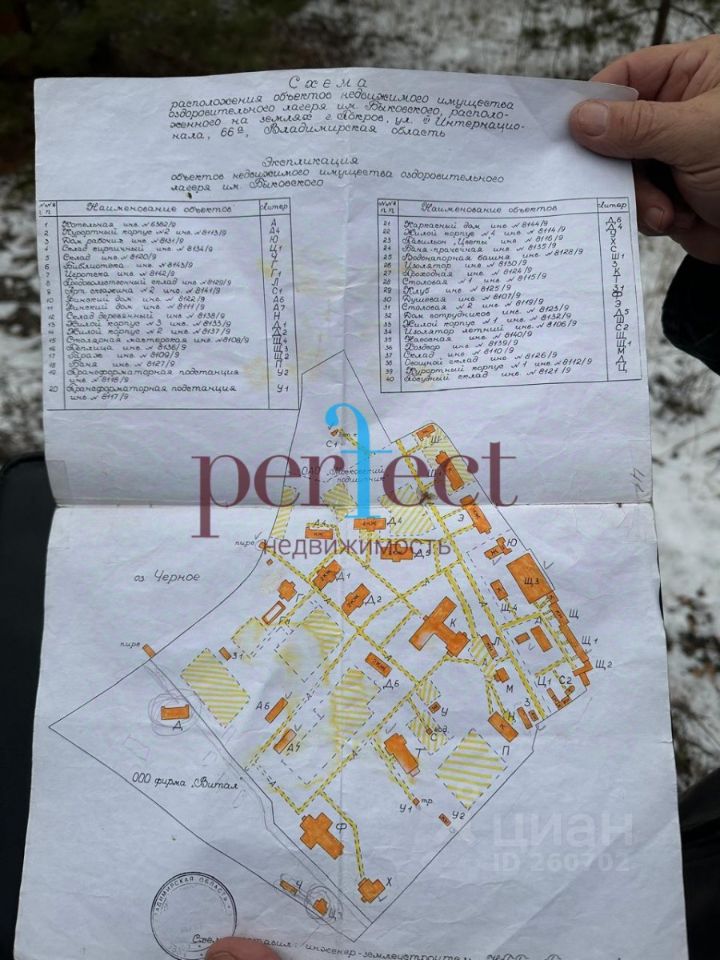 Схема
расположения объектов недвижимого имущества
оздоровительного лагеря им. Быковского, располо-
женного на землях г. Покров, ул. III Интернацио-
нала, 66а, Владимирская область
Экспликация
объектов недвижимого имущества оздоровительного
лагеря им. Быковского
№№ п.п. Наименование объектов Литер
1 Котельная инв. №6362/9 А
2 Курортный корпус №2 инв. №8113/9 А4
3 Дом рабочих инв. №8131/9 Ю
4 Склад кирпичный инв. №8134/9 Ц1
5 Склад инв. №8120/9 Ч
6 Библиотека инв. №8143/9
7 Игротека инв. №8142/9 Г1
8 Продовольственный склад инв. №8129/9 Л
9 Арт. скважина №2 инв. №8141/9 С1
10 Финский дом инв. №8122/9 А6
11 Финский дом инв. №8111/9 А7
12 Склад деревянный инв. №8138/9 Н
13 Жилой корпус №3 инв. №8133/9 Д1
14 Жилой корпус №2 инв. №8137/9 Д2
15 Столярная мастерская инв. №8108/9 Щ4
16 Теплица инв. №8136/9 Щ3
17 Гараж инв. №8109/9 Щ2
18 Баня инв. №8127/9 П
19 Трансформаторная подстанция У2
инв. №8118/9
20 Трансформаторная подстанция У1
инв. №8117/9
№№ п.п. Наименование объектов Литер
21 Каркасный дом инв. №8144/9 Д6
22 Жилой корпус №4 инв. №8114/9 Д4
23 Павильон "Цветы" инв. №8116/9
24 Баня-прачечная инв. №8135/9 Х
25 Водонапорная башня инв. №8128/9 С
26 Изолятор инв. №8130/9 Ш1
27 Проходная инв. №8124/9
28 Столовая №1 инв. №8115/9 К
29 Клуб инв. №8125/9 Т
30 Душевая инв. №8107/9 З1
31 Столовая №2 инв. №8119/9 Ф
32 Дом сотрудников инв. №8123/9 Э
33 Жилой корпус №1 инв. №8132/9 Д5
34 Изолятор летний инв. №8106/9 Ш
35 Насосная инв. №8140/9 С2
36 Бондара инв. №8139/9 Щ
37 Склад инв. №8110/9 Щ1
38 Овощной склад инв. №8126/9 М
39 Курортный корпус №1 инв. №8112/9 Д
40 Посудный склад инв. №8121/9 Ц
С1
Ш
perfect
недвижимость
Д4
Э
Д5
Ю
пирс
оз. Черное
Д1
Щ3
Д2
Щ4
Г1
К
Щ
пирс
З1
Л
Щ1
Щ2
Д6
М
Ц1
С2
Д
А6
У
Н
З
С
П
Т
ООО фирма "Витал"
У1
тр.
У2
Ф
Х
Ч
циан
ID 260702
ВЛАДИМИРСКАЯ ОБЛАСТЬ
инженер-землеустроитель